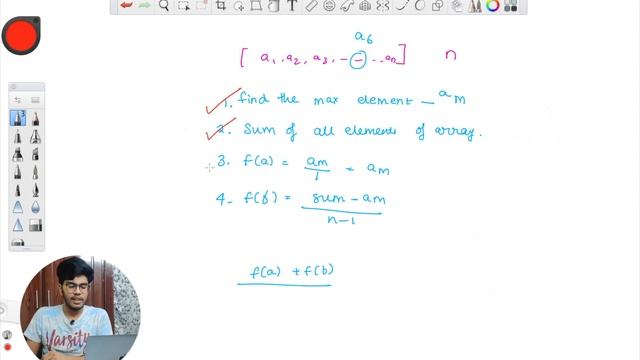 a6
[ a1, a2, a3, - - .. an] n
1. find the max element – am
2. Sum of all elements of array.
3. f(a) = am/1 = am
4. f(b) = sum – am / n–1
f(a) + f(b)
VARSITY